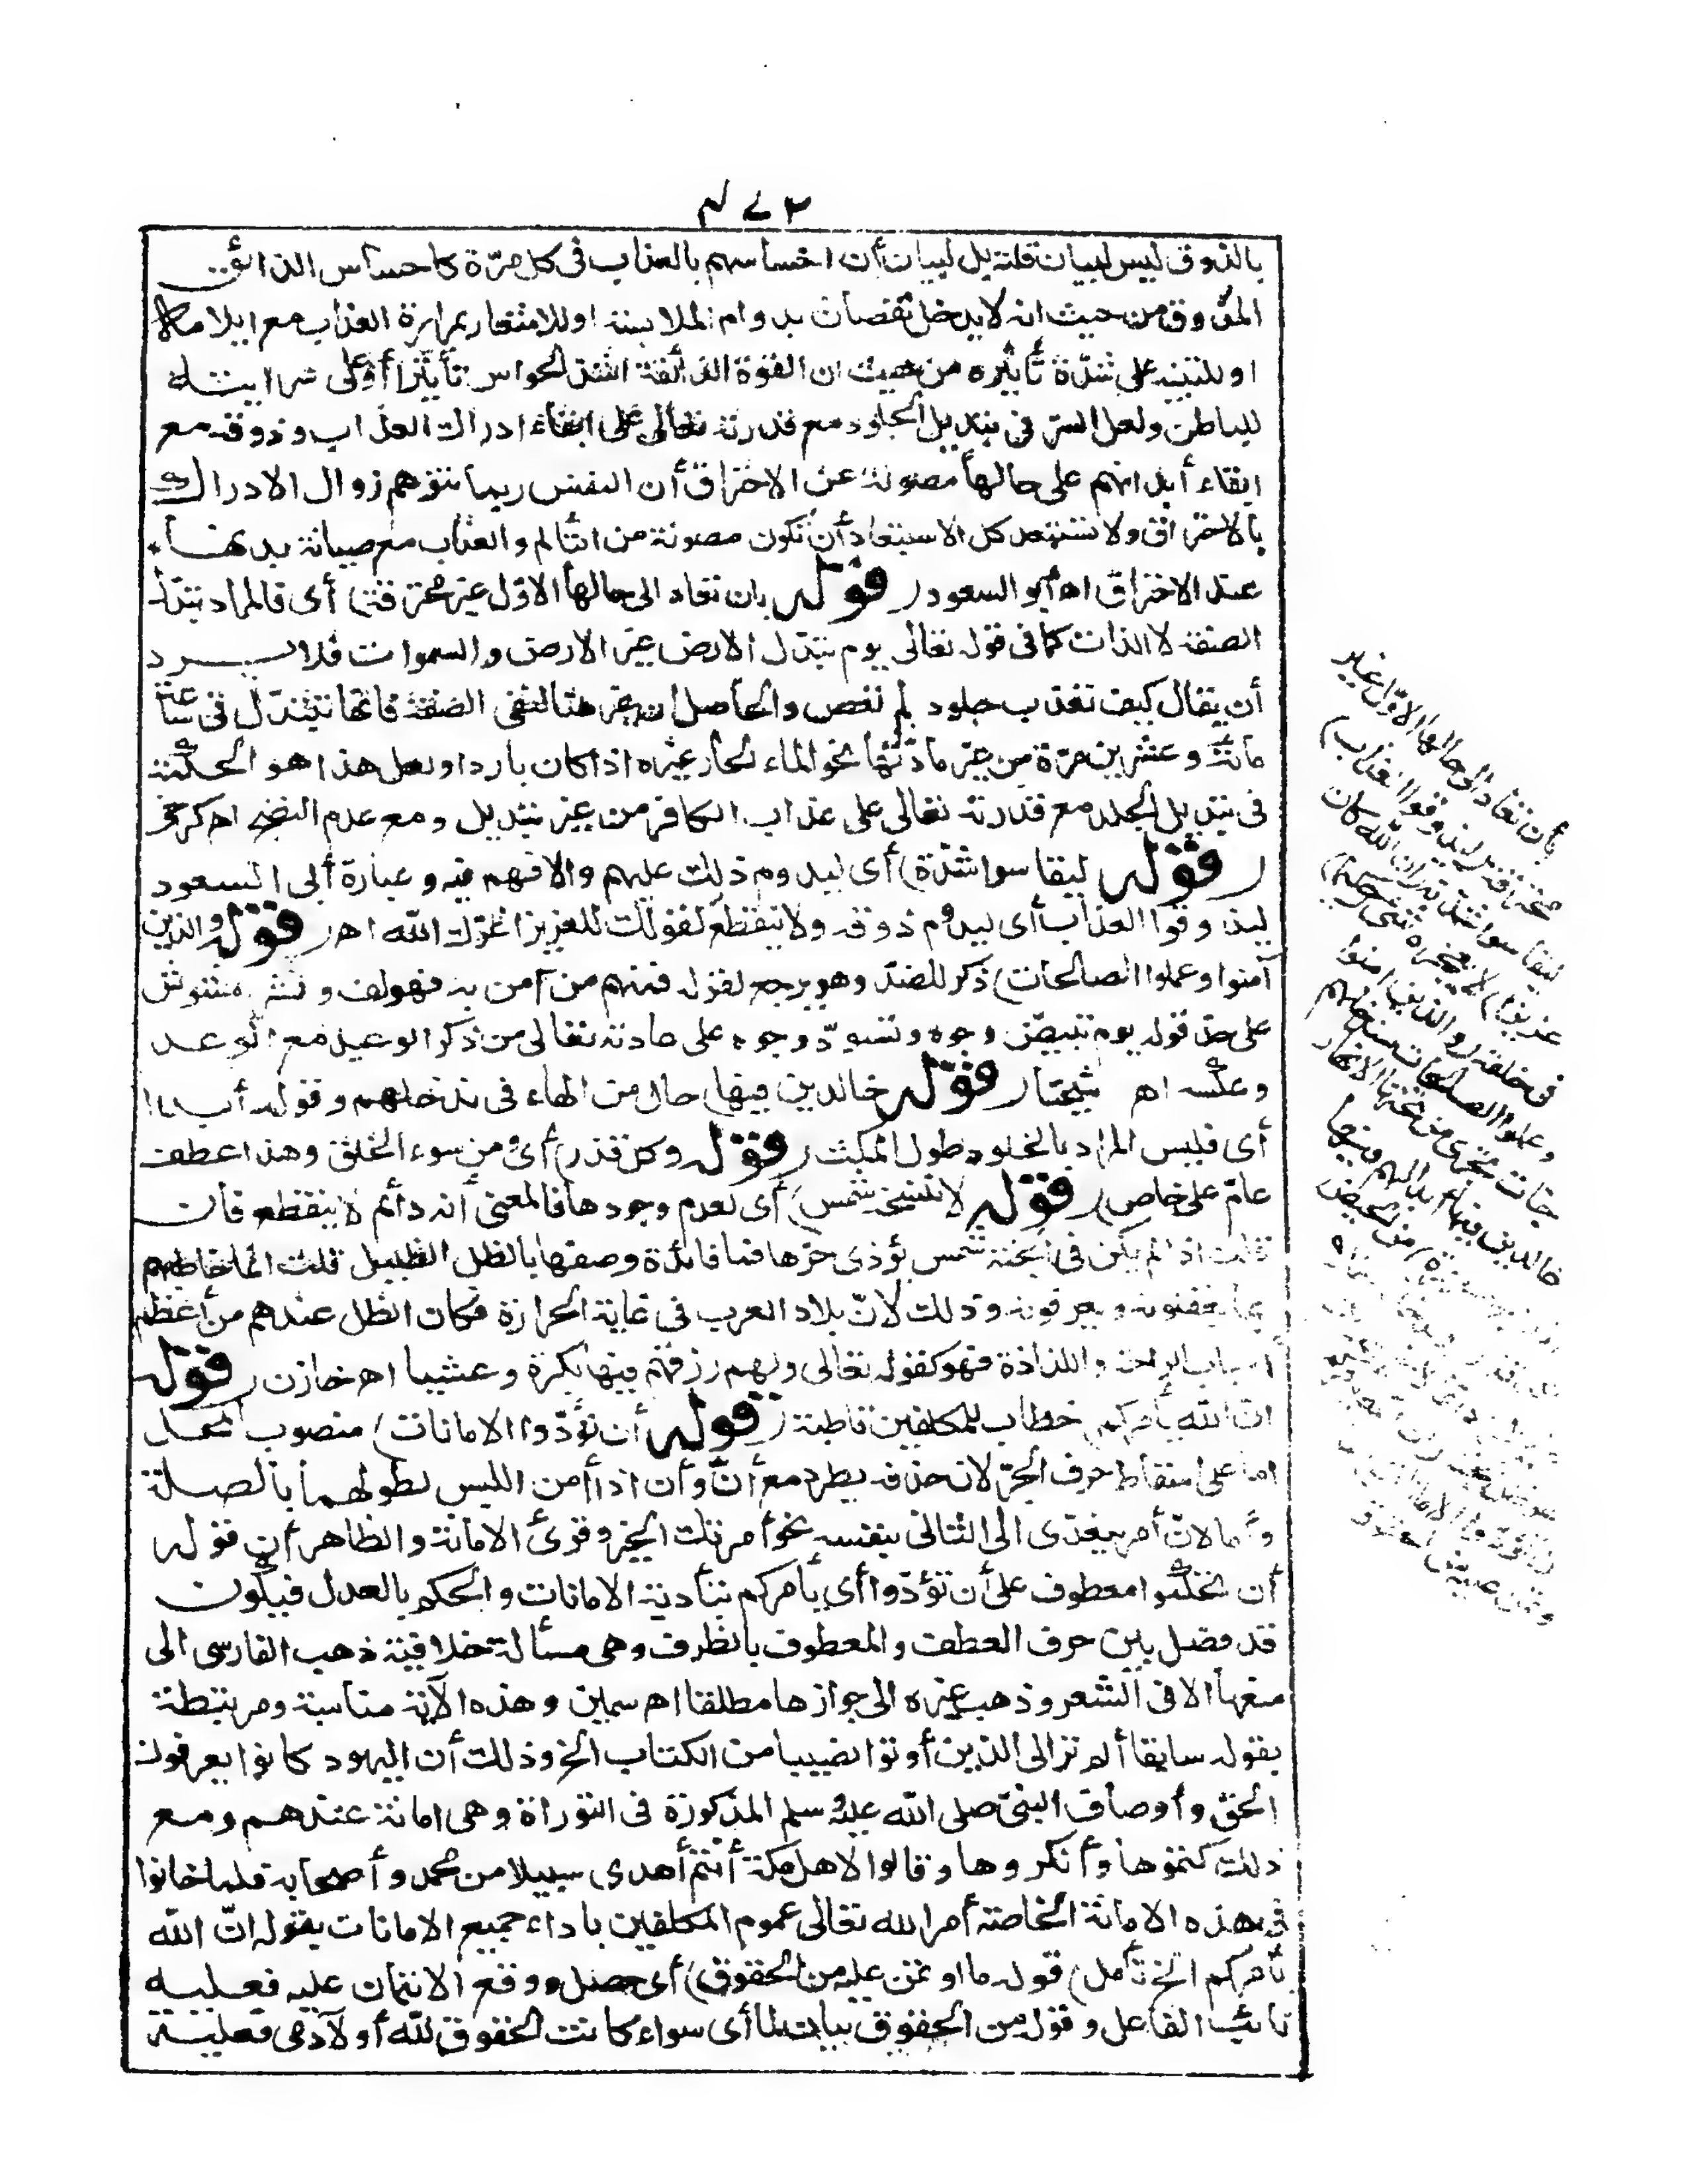 ٤٧٢
بالذوق ليس لبيان قلته بل لبيان أن احساسهم بالعذاب فى كل مرّة كاحساس الذائق
المذوق من حيث انه لا يدخل نقصان بدوام الملابسة او للاشعار بمرارة العذاب مع ايلامه
او للتنبيه على شدّة تأثيره من حيث ان القوة الذائقة اشد الحواس تأثيرا أو على سرايته
للباطن ولعل السرّ فى تبديل الجلود مع قدرته تعالى على ابقاء ادراك العذاب وذوقه مع
ابقاء أبدانهم على حالها مصونة عن الاحتراق أن النفس ربما تتوهم زوال الادراك
بالاحتراق ولا تستبعد كل الاستبعاد أن تكون مصونة من التألم والعذاب مع صيانة بدنها
عند الاحتراق اه أبو السعود (قوله بان تعاد الى حالها الاوّل غير محترقة) أى فالمراد تبدّل
الصفة لا الذات كما فى قوله تعالى يوم تبدّل الارض غير الارض والسموات فلا يرد
أن يقال كيف تعذب جلود لم تعص والحاصل ان غير هنا لنفى الصفة فانها تتبدّل فى ساعة
مائة وعشرين مرّة من غير مادّتها نحو الماء الحار غيره اذا كان باردا ولعل هذا هو الحكمة
فى تبديل الجلد مع قدرته تعالى على عذاب الكافر من غير تبديل ومع عدم النضج اه كرخى
(قوله ليقاسوا شدّة) أى ليدوم ذلك عليهم والا فهم فيه وعبارة أبى السعود
ليذوقوا العذاب أى ليدوم ذوقه ولا ينقطع كقولك للعزيز أعزك الله اه (قوله والذين
آمنوا وعملوا الصالحات) ذكر للضدّ وهو يرجع لقوله فمنهم من آمن به فهو لف ونشر مشوش
على حدّ قوله يوم تبيضّ وجوه وتسودّ وجوه على عادته تعالى من ذكر الوعيد مع الوعد
وعكسه اه شيخنا (قوله خالدين فيها) حال من الهاء فى ندخلهم وقوله أبدا
أى فليس المراد بالخلود طول المكث (قوله وكل قذر) أى من سوء الخلق وهذا عطف
عامّ على خاص) (قوله لا تنسخه شمس) أى لعدم وجودها فالمعنى أنه دائم لا ينقطع فان
قلت اذا لم يكن فى الجنة شمس يؤذى حرّها فما فائدة وصفها بالظل الظليل قلت انما خاطبهم
بما يعقلونه ويعرفونه وذلك لانّ بلاد العرب فى غاية الحرارة فكان الظل عندهم من أعظم
أسباب الراحة واللذاذة فهو كقوله تعالى ولهم رزقهم فيها بكرة وعشيا اه خازن (قوله
انّ الله يأمركم) خطاب للمكلفين قاطبة (قوله أن تؤدّوا الامانات) منصوب المحل
اما على اسقاط حرف الجرّ لان حذفه يطرد مع أنّ وأن اذا أمن اللبس لطولهما بالصلة
واما لانّ أمر يتعدّى الى الثانى بنفسه نحو أمرتك الخير وقرئ الامانة والظاهر أن قوله
أن تحكموا معطوف على أن تؤدّوا أى يأمركم بتأدية الامانات والحكم بالعدل فيكون
قد فصل بين حرف العطف والمعطوف بالظرف وهى مسألة خلافية ذهب الفارسى الى
منعها الا فى الشعر وذهب غيره الى جوازها مطلقا اه سمين وهذه الآية مناسبة ومرتبطة
بقوله سابقا ألم تر الى الذين أوتوا نصيبا من الكتاب الخ وذلك أن اليهود كانوا يعرفون
الحق وأوصاف النبىّ صلى الله عليه وسلم المذكورة فى التوراة وهى امانة عندهم ومع
ذلك كتموها وأنكروها وقالوا لاهل مكة أنتم أهدى سبيلا من محمد وأصحابه فلما خانوا
فى هذه الامانة الخاصة أمر الله تعالى عموم المكلفين باداء جميع الامانات بقوله انّ الله
يأمركم الخ تأمل) قوله ما اوتمن عليه من الحقوق) أى حصل ووقع الائتمان عليه فعليه
نائب الفاعل وقوله من الحقوق بيان لما أى سواء كانت الحقوق لله أو لآدمى فعلية
بأن تعاد الى حالها الاوّل غير
محترقة (ليذوقوا العذاب)
ليقاسوا شدّته (ان الله كان
عزيزا) لا يعجزه شئ (حكيما)
فى خلقه (والذين آمنوا
وعملوا الصالحات سندخلهم
جنات تجرى من تحتها الانهار
خالدين فيها أبدا لهم فيها
أزواج مطهرة) من الحيض